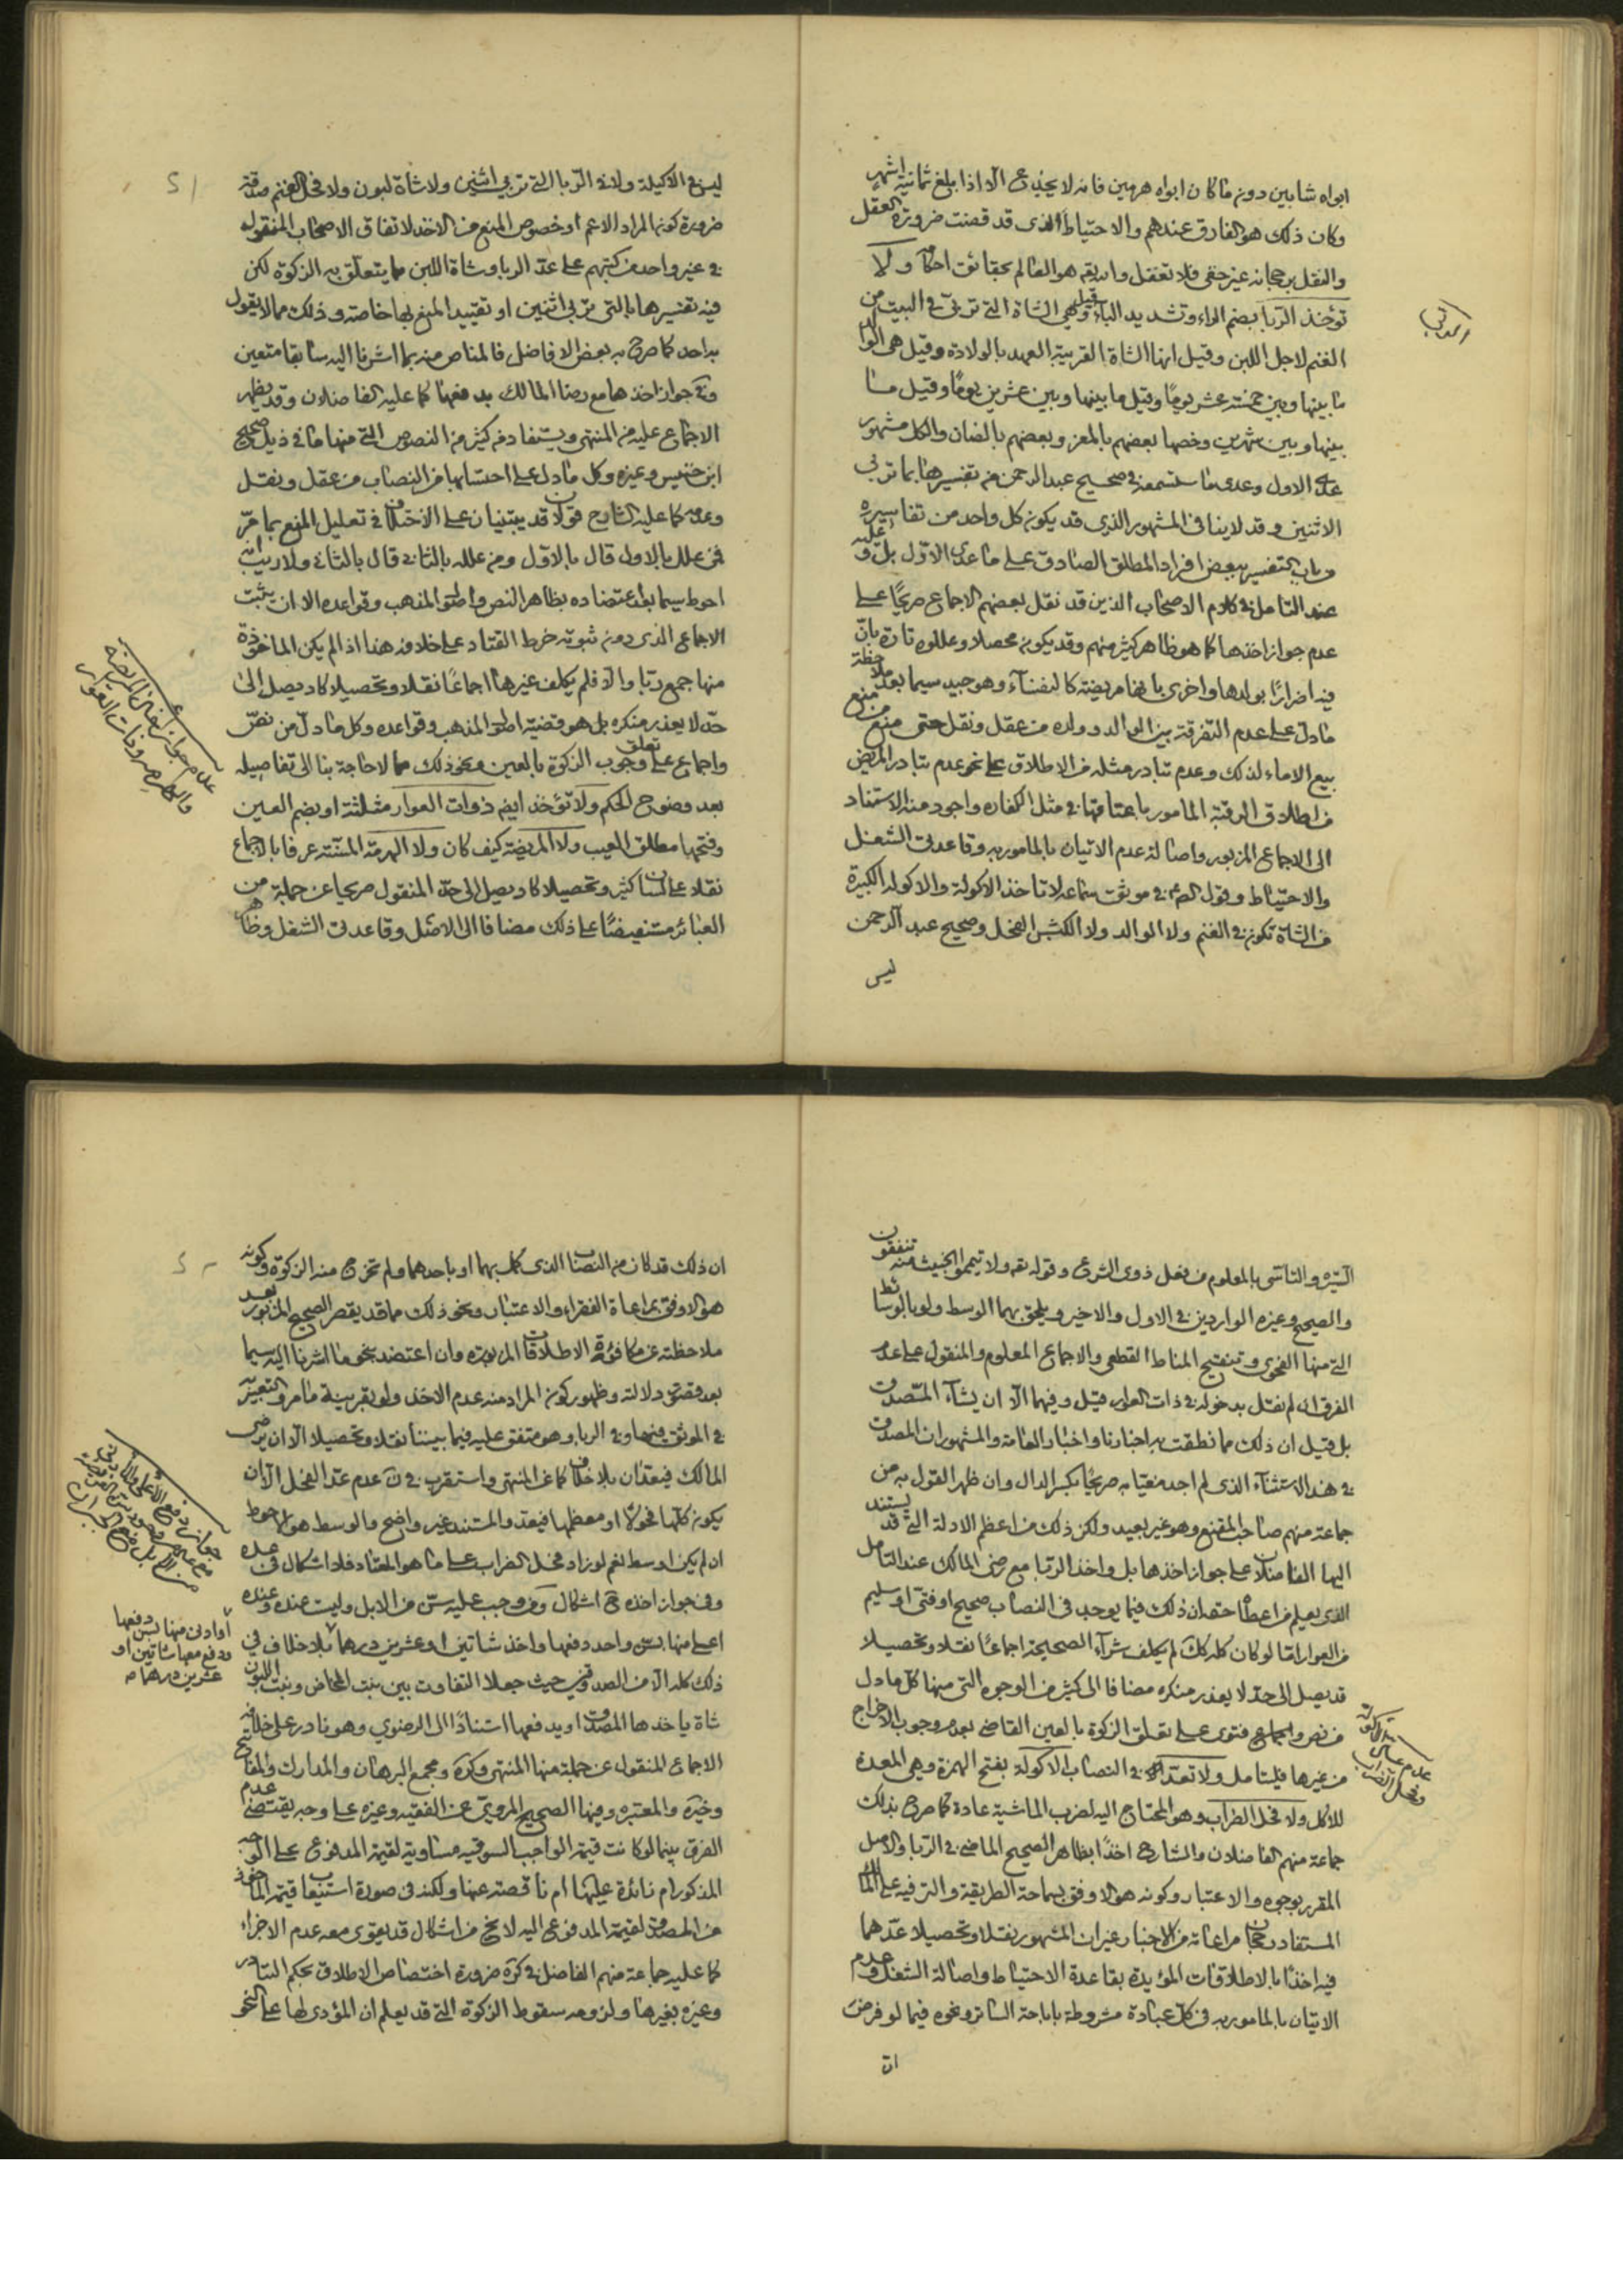 ابواه شابين دون ما كان ابواه هرمين فانه لا يجذع الا اذا بلغ ثمانية اشهر
وكان ذلك هو الفارق عندهم والاحتياط الذي قد قضت ضرورة العقل
والنقل برجحانه غير خفي فلا تغفل والله هو العالم بحقائق احكامه ولا
تؤخذ الربا بضم الراء وتشديد الباء قيل وهي الشاة التي تربى في البيت من
الغنم لاجل اللبن وقيل انها الشاة القريبة العهد بالولادة وقيل هي الوالد
ما بينها وبين خمسة عشر يوما وقيل ما بينها وبين عشرين يوما وقيل ما
بينها وبين شهرين وخصها بعضهم بالمعز وبعضهم بالضان والكل مشهور
على الاول وعدى ما ستسمعه في صحيح عبد الرحمن من تفسيرها بما تربى
الاثنين وقد لا ينافي المشهور الذي قد يكون كل واحد من تفاسيره
من باب التفسير ببعض افراد المطلق الصادق على ما عدى الاول بل وعليه
عند التامل في كلام الاصحاب الذين قد نقل بعضهم الاجماع صريحا على
عدم جواز اخذها كما هو ظاهر كثير منهم وقد يكون محصلا وعللوه تارة بان
فيه اضرارا بولدها واخرى بانها مريضة كالنفساء وهو جيد سيما بعد ملاحظة
ما دل على عدم التفرقة بين الوالد وولده من عقل ونقل حتى منع من منع
بيع الاماء لذلك وعدم تبادر مثله من الاطلاق على نحو عدم تبادر المريض
من اطلاق الرقبة المامور باعتاقها في مثل الكفاره واجود منه الاستناد
الى الاجماع المزبور واصالة عدم الاتيان بالمامور به وقاعدتى الشغل
والاحتياط وقول الصم في موثق سماعه لا تاخذ الاكولة والاكولة الكبيرة
من الشاة تكون في الغنم ولا الوالد ولا الكبش الفحل وصحيح عبد الرحمن
ليس
ليس في الاكيلة ولا في الربا التي تربى اثنين ولا شاة لبون ولا فحل الغنم صدقة
ضرورة كونها المراد الاعم او خصوص المنع من الاخذ لاتفاق الاصحاب المنقول
في غير واحد من كتبهم على عد الربا وشاة اللبن مما يتعلق به الزكوة لكن
فيه تفسيرها بالتي تربى اثنين او تقييد المنع بها خاصة وذلك مما لا يقول
به احد كما صرح به بعض الافاضل فالمناص منه بما اشرنا اليه سابقا متعين
وفي جواز اخذها مع رضا المالك بدفعها كما عليه الفاضلان وقد يظهر
الاجماع عليه من المنتهى ويستفاد من كثير من النصوص التي منها ما في ذيل صحيح
ابن خنيس وغيره وكل ما دل على احتسابها من النصاب من عقل ونقل
وعدمه كما عليه الشارح قولان قد يبتنيان على الاختلاف في تعليل المنع بما مر
فمن علل بالاول قال بالاول ومن علله بالثاني قال بالثاني ولا ريب انه
احوط سيما بعد اعتضاده بظاهر النص واصول المذهب وقواعده الا ان يثبت
الاجماع الذي دون ثبوته خرط القتاد على خلافه هذا اذا لم يكن الماخوذة
منها جمع ربا والا فلم يكلف غيرها اجماعا نقلا وتحصيلا كاد يصل الى
حد لا يعذر منكره بل هو قضية اصول المذهب وقواعده وكل ما دل من نص
واجماع على تعلق وجوب الزكوة بالعين ونحو ذلك مما لا حاجة بنا الى تفاصيله
بعد وضوح الحكم ولا تؤخذ ايضم ذوات العوار مثلثة او بضم العين
وفتحها مطلق العيب ولا المريضة كيف كان ولا الهرمة المسنة عرفا بالاجماع
نقلا على لسان كثير وتحصيلا كاد يصل الى حد المنقول صريحا عن جملة من
العبائر مستفيضا على ذلك مضافا الى الاصل وقاعدتى الشغل وظاهر
عدم جواز اخذ المريضة
والهرمة وذات العوار
السيره والتاسى بالمعلوم من فعل ذوى الشرع وقوله تعه ولا تيمموا الخبيث منه تنفقون
والصحيح وغيره الواردين في الاول والاخير ويلحق بهما الوسط ولو بالوسائط
التي منها الفحوى وتنقيح المناط القطعى والاجماع المعلوم والمنقول على عدم
الفرق ان لم نقل بدخوله في ذات العوار قيل وفيهما الا ان يشاء المتصدق
بل قيل ان ذلك مما نطقت به اخبارنا واخبار العامة والمشهوران المصدق
في هذا الاستثناء الذي لم اجد مفتيا به صريحا بكسر الدال وان ظهر القول به من
جماعة منهم صاحب المقنع وهو غير بعيد ولكن ذلك من اعظم الادلة التي قد يستند
اليها الفاضلان على جواز اخذها بل واخذ الربا مع رضى المالك عند التامل
الذي يعلم من اعطاه حقه ان ذلك فيما يوجد في النصاب صحيح او فتى او سليم
من العوار اما لو كان كله كك لم يكلف شراء الصحيحة اجماعا نقلا وتحصيلا
قد يصل الى حد لا يعذر منكره مضافا الى كثير من الوجوه التي منها كل ما دل
من نص واجماع فتوى على تعلق الزكوة بالعين القاضى بعدم وجوب الاخراج
من غيرها فليتامل ولا تعد في النصاب الاكولة بفتح الهمزة وهي المعدة
للاكل ولا فحل الضراب وهو المحتاج اليه لضرب الماشية عادة كما صرح بذلك
جماعة منهم الفاضلان والشارح اخذا بظاهر الصحيح الماضى في الربا والاصل
المقرر بوجوه والاعتبار وكونه هو الاوفق بسماحة الطريقة والترفيه على المالك
المستفاد رجحان مراعاته من الاخبار غير ان المشهور نقلا وتحصيلا عدهما
فيه اخذا بالاطلاقات المؤيدة بقاعدة الاحتياط واصالة الشغل وعدم
الاتيان بالمامور به في كل عبادة مشروطة باباحة الساتر ونحوه فيما لو فرض
ان
ان ذلك قد كان من النصاب الذي كمل بهما او باحدهما ولم تخرج منه الزكوة وكونه
هو الاوفق بمراعاة الفقراء والاعتبار ونحو ذلك مما قد يقصر الصحيح المزبور بعد
ملاحظته عن مكافؤة الاطلاقات المزبوره وان اعتضد بنحو ما اشرنا اليه سيما
بعد قصور دلالته وظهور كون المراد منه عدم الاخذ ولو بقرينة ما مر والتعبير
في الموثق فيها وفي الربا وهو متفق عليه فيما بيننا نقلا وتحصيلا الا ان يرضى
المالك فيعدان بلا خلاف كما عن المنتهى واستقرب في ن عدم عد الفحل الا ان
يكون كلها فحولا او معظمها فيعد والمستند غير واضح والوسط هو الاحوط
ان لم يكن اوسط نعم لو زاد فحل الضراب على ما هو المعتاد فلا اشكال في عده
وفي جواز اخذه مع اشكال ومن وجب عليه سن من الابل وليست عنده وعنده
اعلى منها بسن واحد دفعها واخذ شاتين او عشرين درهما بلا خلاف في
ذلك كله الا من الصدوقين حيث جعلا التفاوت بين بنت المخاض وبنت اللبون
شاة ياخذها المصدق او يدفعها استنادا الى الرضوي وهو نادر على خلافه
الاجماع المنقول عن جملة منها المنتهى وكره ومجمع البرهان والمدارك والمفاتيح
وخيره والمعتبره وفيها الصحيح المروي عن الفقيه وغيره على وجه يقتضى عدم
الفرق بينما لو كانت قيمة الواجب السوقيه مساوية لقيمة المدفوع على الوجه
المذكور ام زائدة عليها ام ناقصة عنها ولكنه في صورة استيعاب قيمة الماخوذ
من المصدق لقيمة المدفوع اليه لا يخ من اشكال قد يقوى معه عدم الاجزاء
كما عليه جماعة منهم الفاضل في كره ضرورة اختصاص الاطلاق بحكم التبادر
وغيره بغيرها ولزومه سقوط الزكوة التي قد يعلم ان المؤدى لها على النحو
او ادنى منها بسن دفعها
ودفع معها شاتين او
عشرين درهما